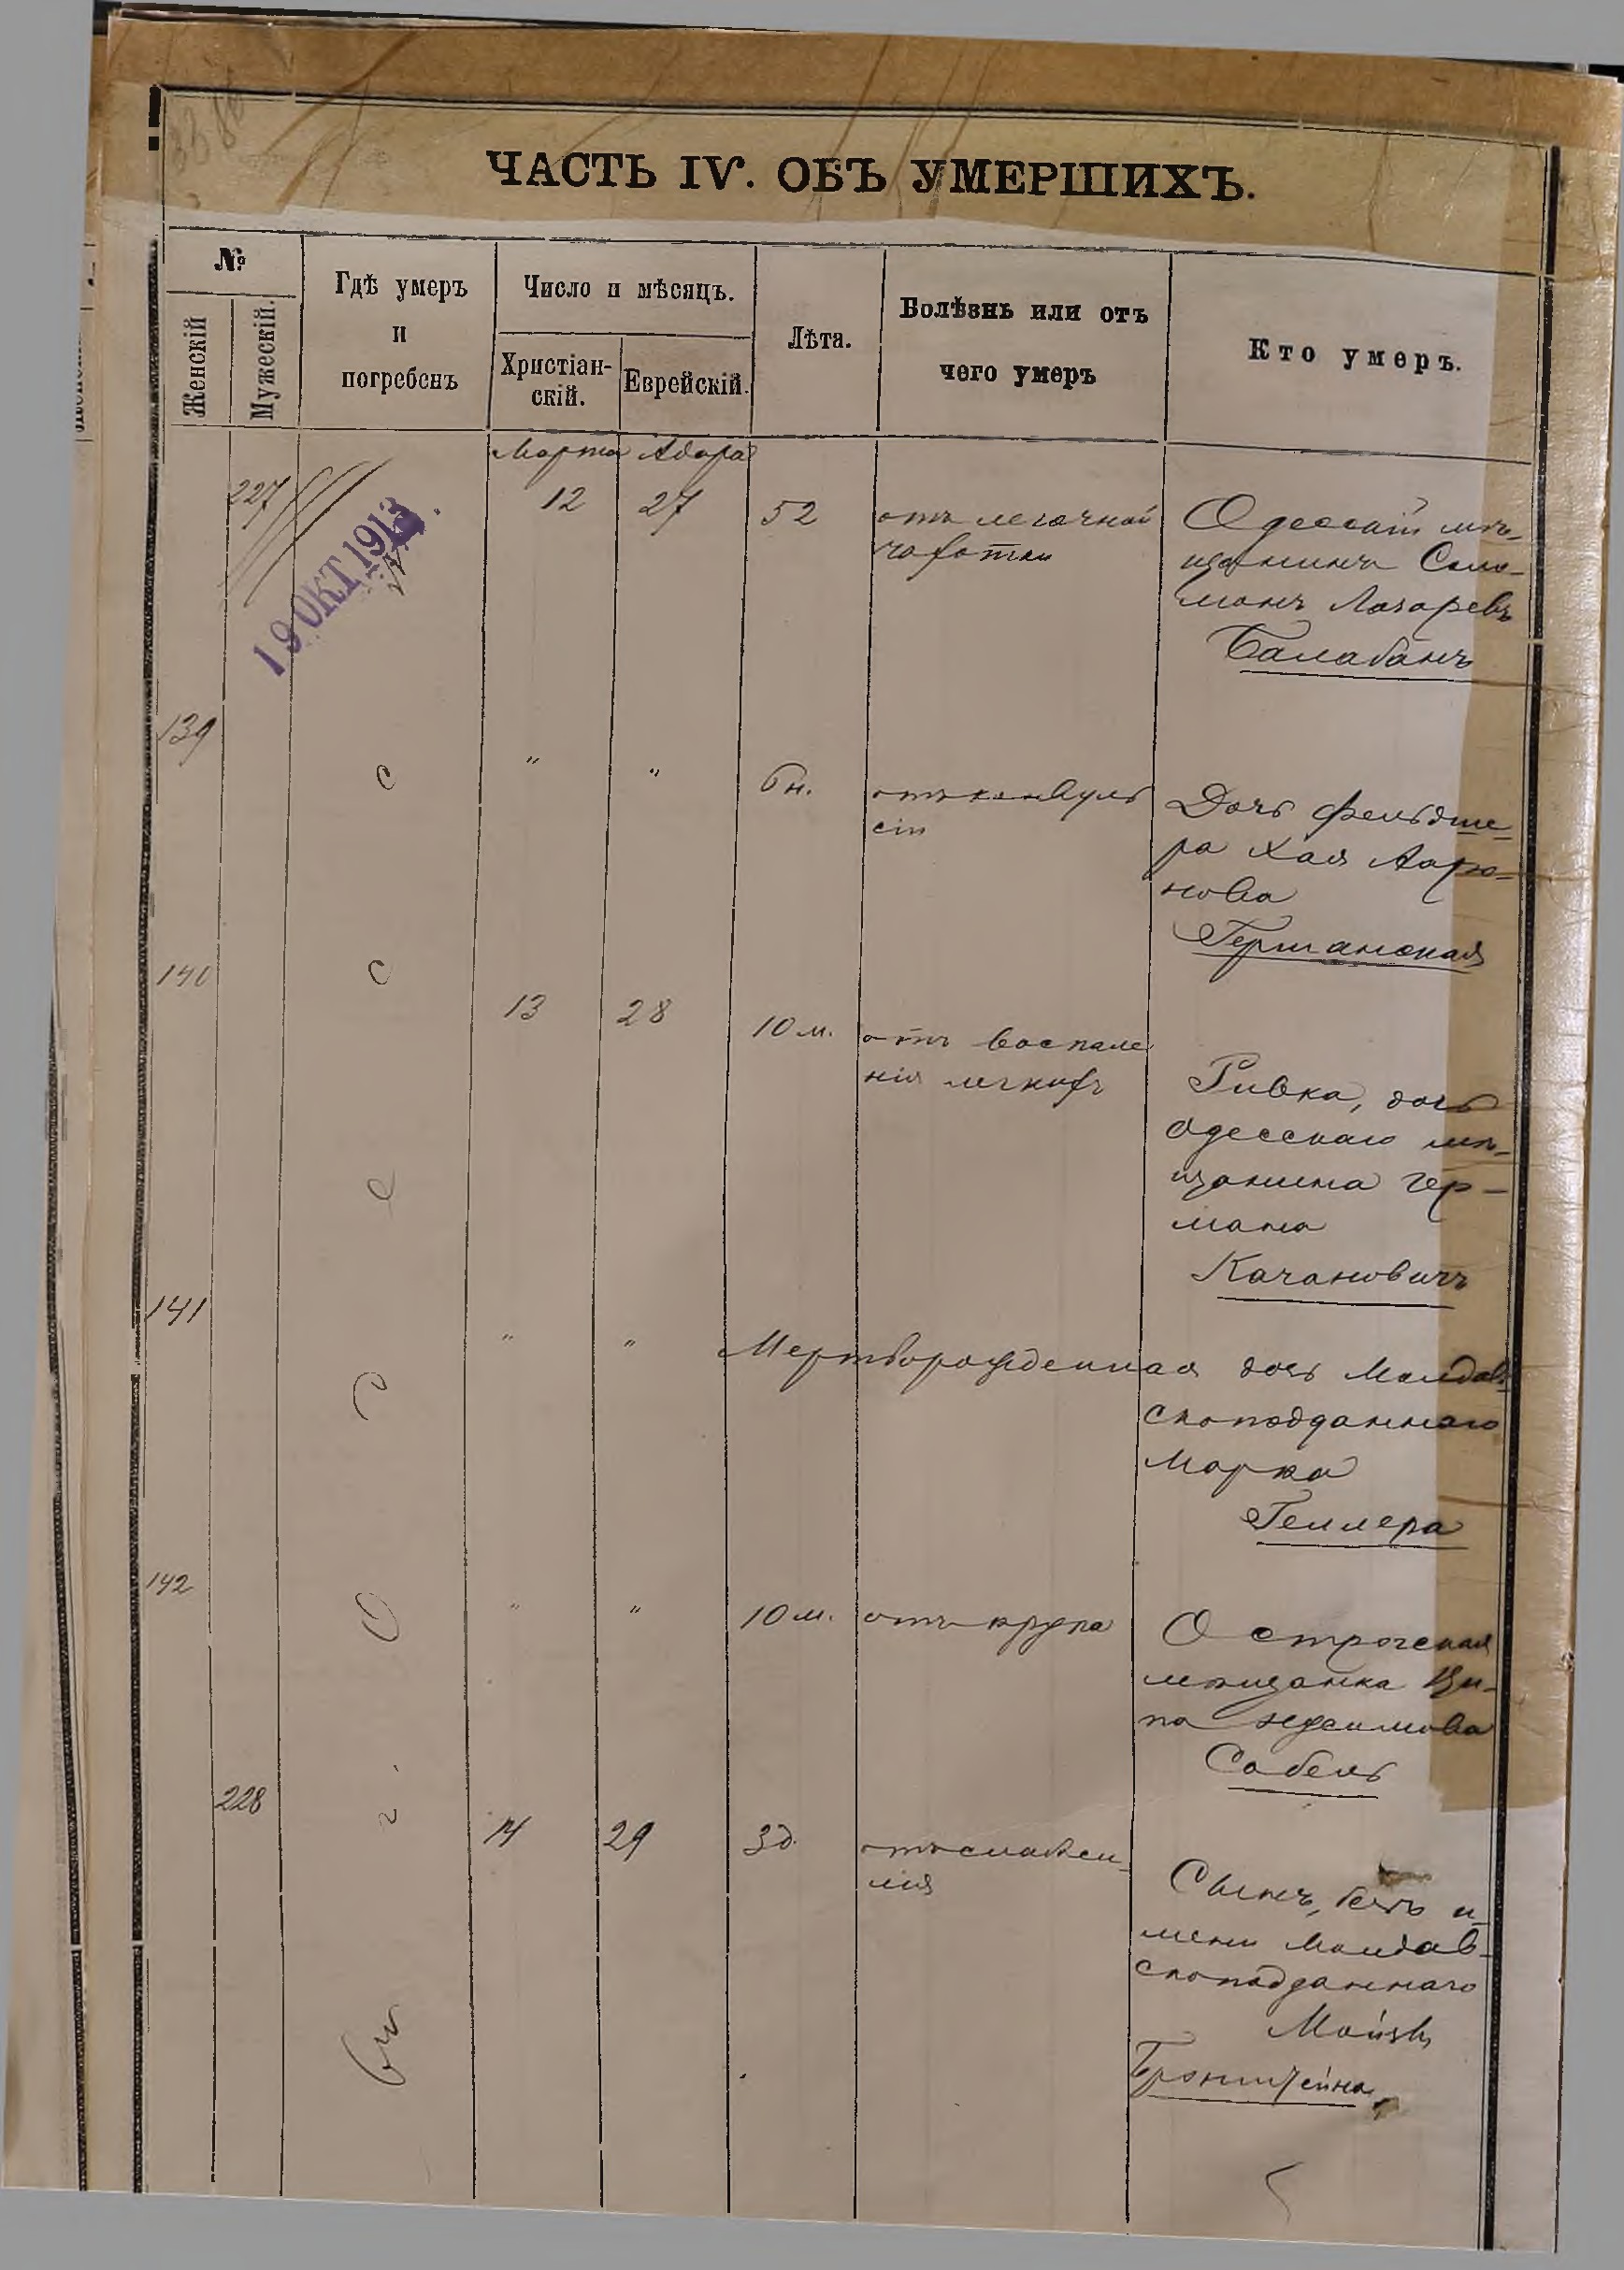 ЧАСТЬ IV. ОБЪ УМЕРШИХЪ.
№
Женскій
Мужескій.
Гдѣ умеръ
и
погребенъ
Число и мѣсяцъ.
Христіан-
скій.
Еврейскій.
Лѣта.
Болѣзнь или отъ
чего умеръ
Кто умеръ.
Марта Адара
227 12 27 52 отъ легочной
чахотки
Одесскій мѣ-
щанинъ Соло-
монъ Лазаревъ
Балабанъ
19 ОКТ 1913
139 " " 6 н. отъ конвуль
сіи
Дочь фельдше-
ра Хая Ааро-
нова
Германская
140 13 28 10 м. отъ воспале
нія легкихъ
Ривка, дочь
одесскаго мѣ-
щанина Гер-
мана
Качановичъ
141 " " Мертворожденная дочь Молдав-
скоподданнаго
Марка
Геллера
142 " " 10 м. отъ крупа
Острогская
мѣщанка Ци-
па
Сабель
228 14 29 3 д.
Сынъ, безъ и-
мени Молдав-
скоподданнаго
Мойзы
Бронштейна
О д е с с